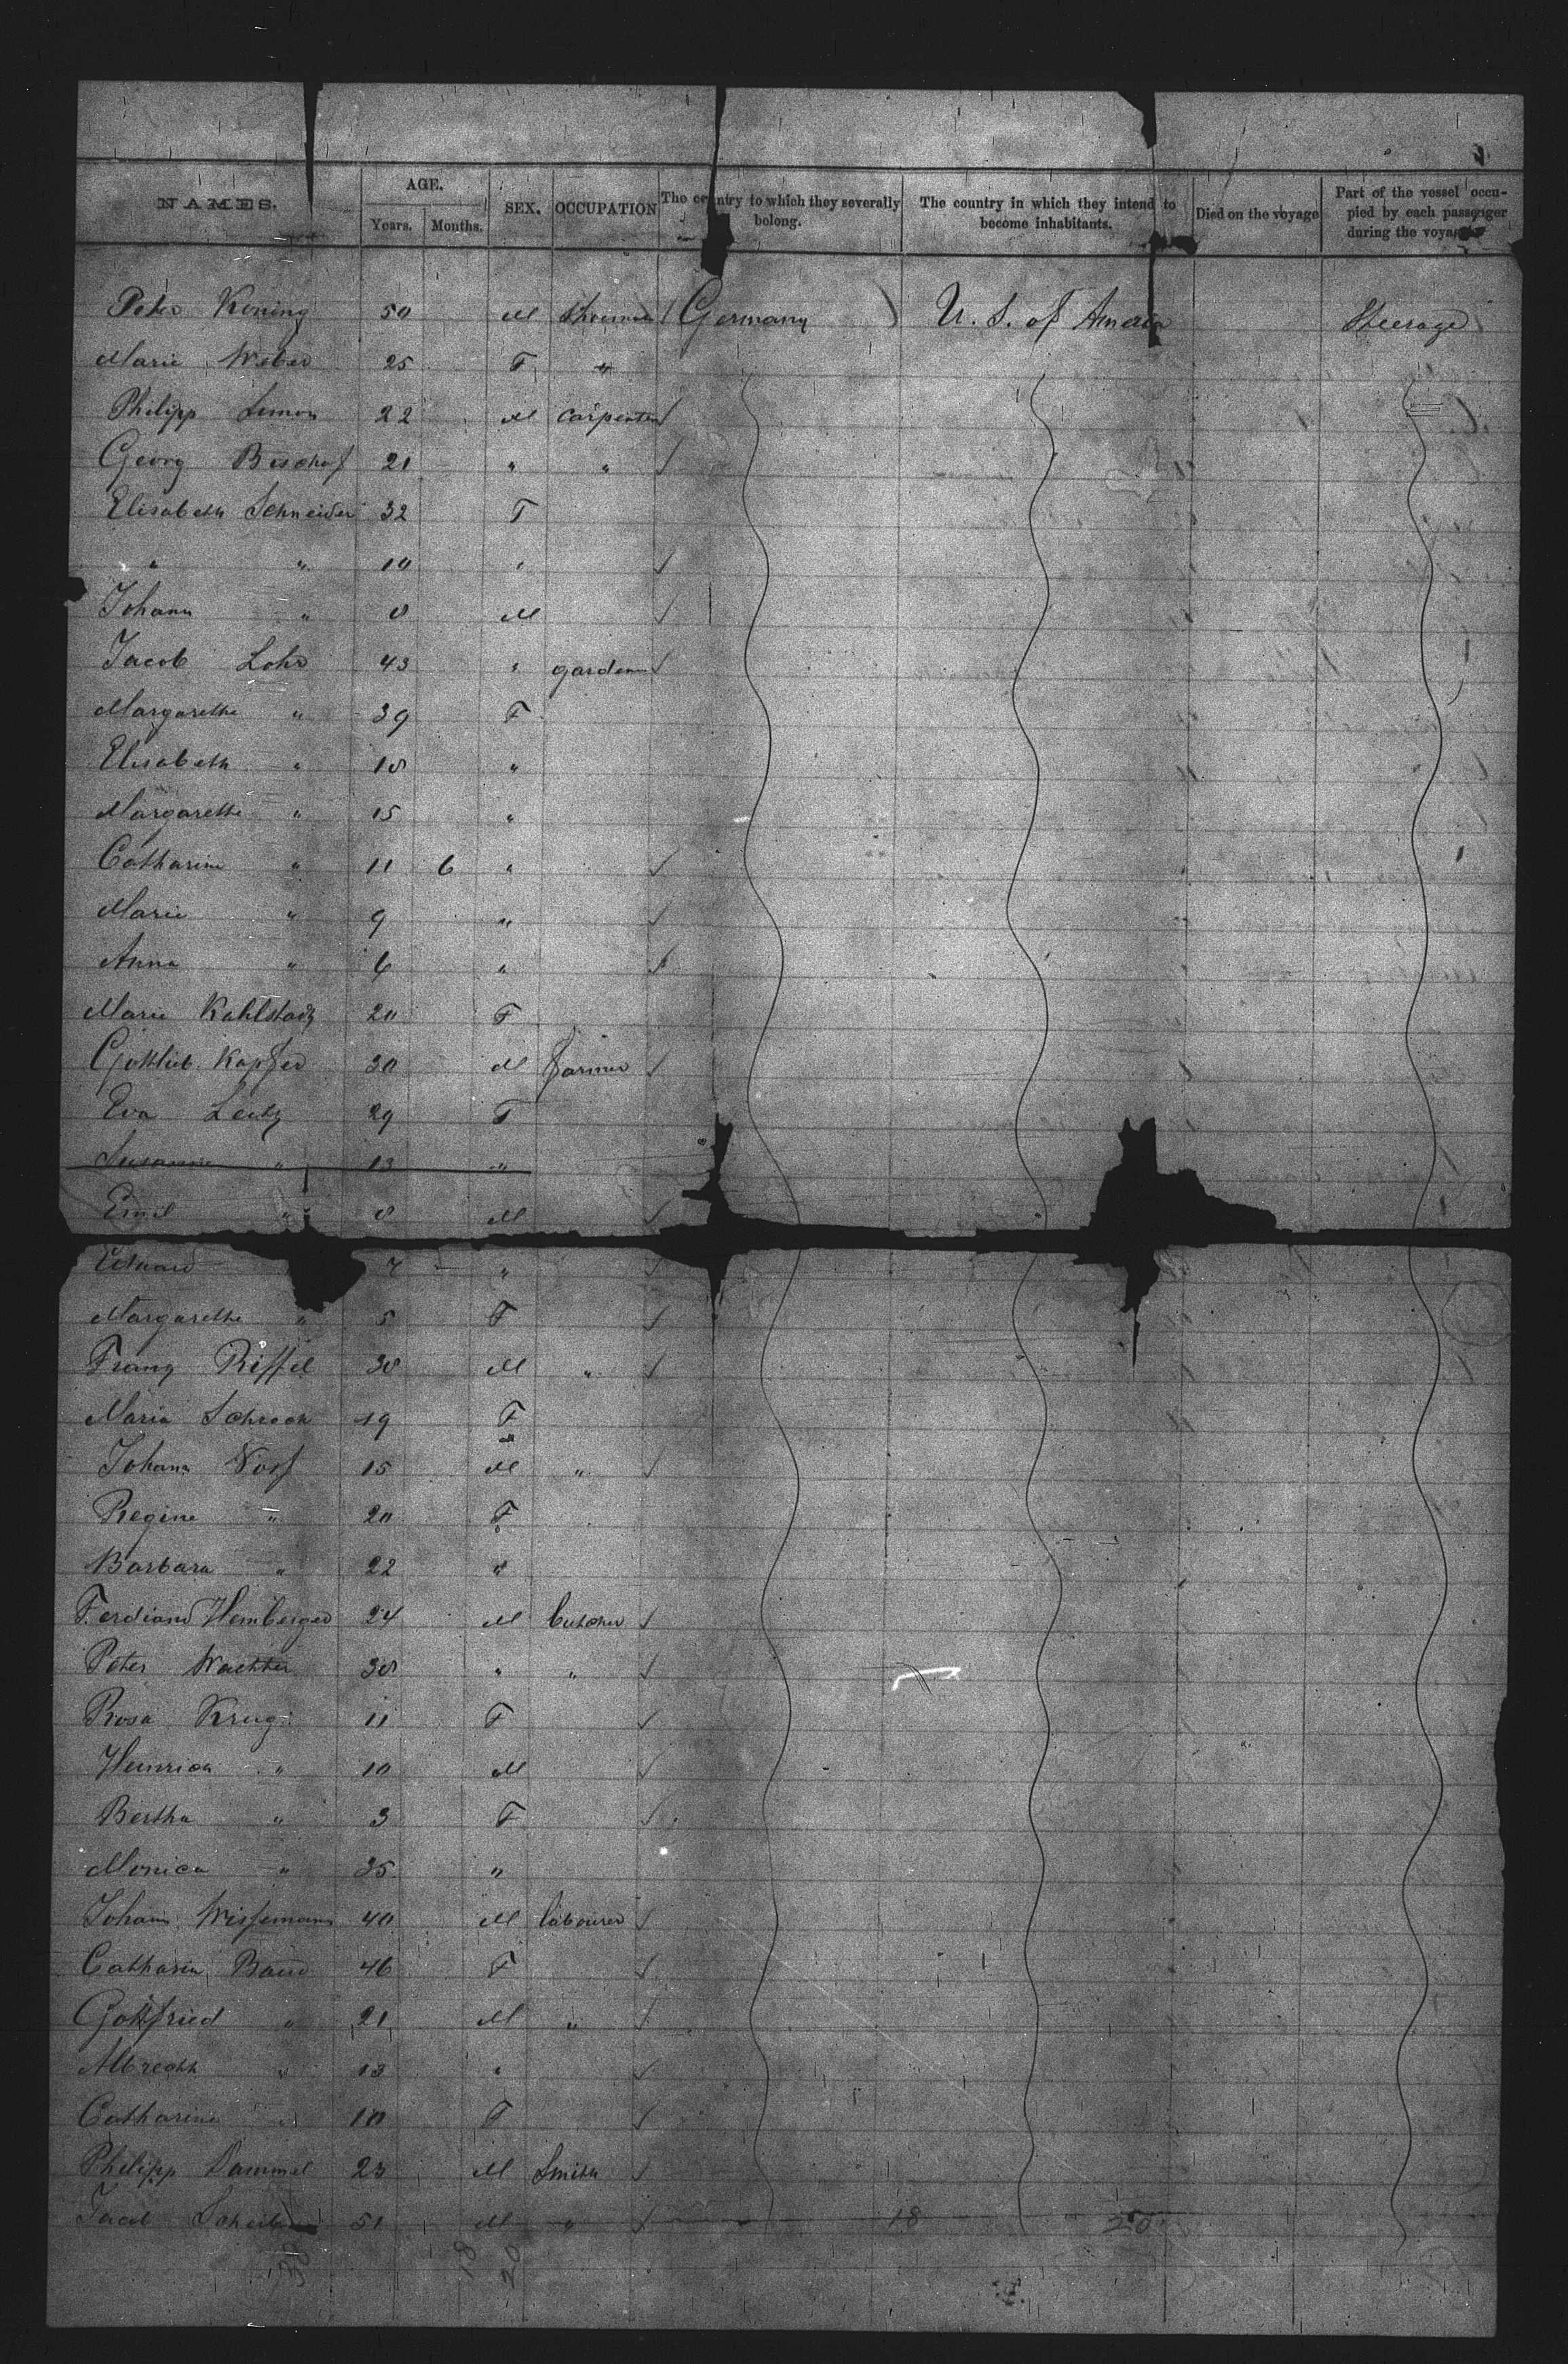 NAMES. AGE. Years. Months. SEX. OCCUPATION The country to which they severally belong. The country in which they intend to become inhabitants. Died on the voyage Part of the vessel occupied by each passenger during the voyage
Peter Koning 50 M Shoemak Germany U. S. of America Steerage
Marie Weber 25 F "
Philipp Simon 22 M carpenter
Georg Bischof 21 " "
Elisabeth Schneider 32 F
" " 10 "
Johann " 8 M
Jacob Lohr 43 " garden
Margarethe " 39 F
Elisabeth " 18 "
Margarethe " 15 "
Catharine " 11 6 "
Marie " 9 "
Anna " 6 "
Marie Kahlstadz 20 F
Gottlieb Kapfer 30 M farmer
Eva Leitz 29 F
Susanne " 13 "
Emil " 8 M
Eduard 7 "
Margarethe " 5 F
Franz Riffel 38 M "
Maria Schrock 19 F
Johann 15 M "
Regine " 20 F
Barbara " 22 "
Ferdiand Hemberger 24 M butcher
Peter Wachter 38 " "
Rosa Krug 11 F
Heinrich " 10 M
Bertha " 3 F
Monica " 35 "
Johann Wissemann 40 M labourer
Catharin Baur 46 F
Gottfried " 21 M "
Albrecht " 13 "
Catharine " 10 F
Philipp Dammel 23 M Smith
Jacob 51 M " 18 20
38 18 20